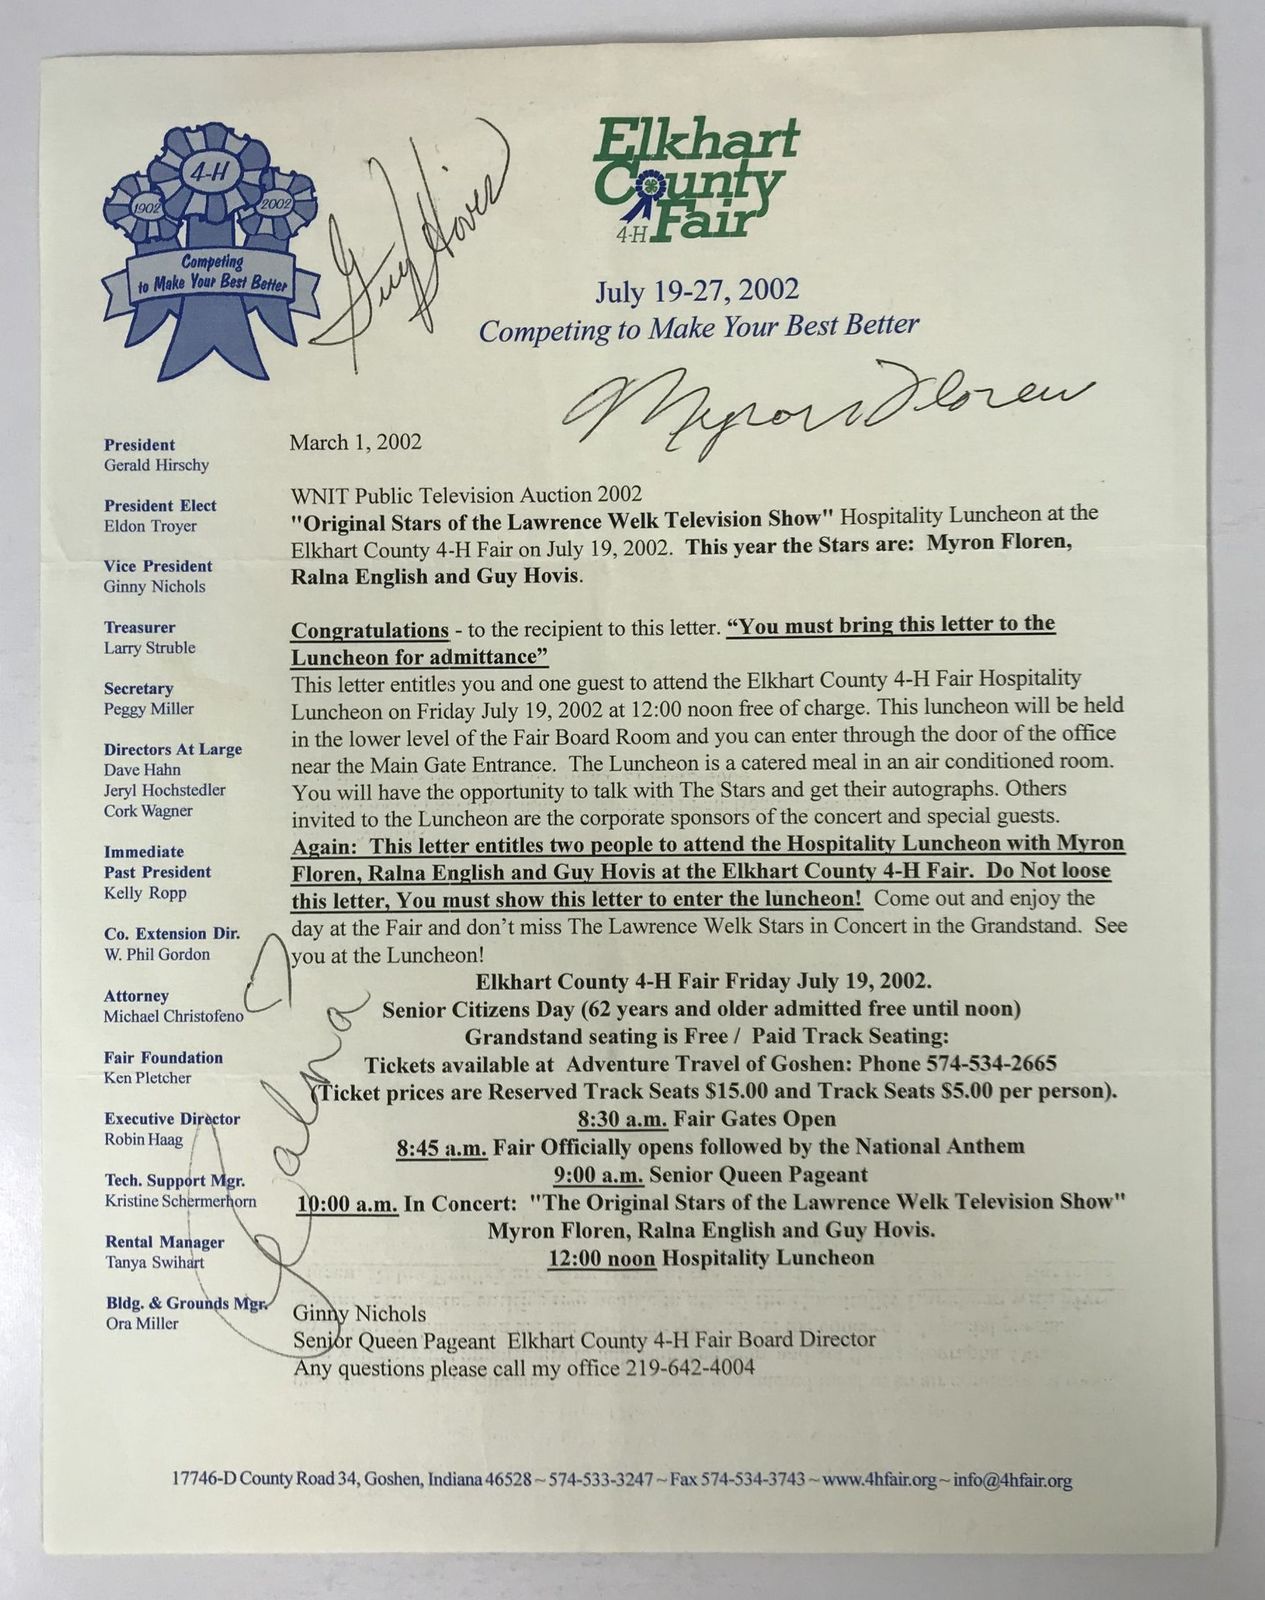 4-H
1902
2002
Competing
to Make Your Best Better
Guy Hovis
Elkhart
County
4-H Fair
July 19-27, 2002
Competing to Make Your Best Better
Myron Floren
President
Gerald Hirschy
President Elect
Eldon Troyer
Vice President
Ginny Nichols
Treasurer
Larry Struble
Secretary
Peggy Miller
Directors At Large
Dave Hahn
Jeryl Hochstedler
Cork Wagner
Immediate
Past President
Kelly Ropp
Co. Extension Dir.
W. Phil Gordon
Attorney
Michael Christofeno
Fair Foundation
Ken Pletcher
Executive Director
Robin Haag
Tech. Support Mgr.
Kristine Schermerhorn
Rental Manager
Tanya Swihart
Bldg. & Grounds Mgr.
Ora Miller
March 1, 2002
WNIT Public Television Auction 2002
"Original Stars of the Lawrence Welk Television Show" Hospitality Luncheon at the
Elkhart County 4-H Fair on July 19, 2002. This year the Stars are: Myron Floren,
Ralna English and Guy Hovis.
Congratulations - to the recipient to this letter. “You must bring this letter to the
Luncheon for admittance”
This letter entitles you and one guest to attend the Elkhart County 4-H Fair Hospitality
Luncheon on Friday July 19, 2002 at 12:00 noon free of charge. This luncheon will be held
in the lower level of the Fair Board Room and you can enter through the door of the office
near the Main Gate Entrance. The Luncheon is a catered meal in an air conditioned room.
You will have the opportunity to talk with The Stars and get their autographs. Others
invited to the Luncheon are the corporate sponsors of the concert and special guests.
Again: This letter entitles two people to attend the Hospitality Luncheon with Myron
Floren, Ralna English and Guy Hovis at the Elkhart County 4-H Fair. Do Not loose
this letter, You must show this letter to enter the luncheon! Come out and enjoy the
day at the Fair and don’t miss The Lawrence Welk Stars in Concert in the Grandstand. See
you at the Luncheon!
Elkhart County 4-H Fair Friday July 19, 2002.
Senior Citizens Day (62 years and older admitted free until noon)
Grandstand seating is Free / Paid Track Seating:
Tickets available at Adventure Travel of Goshen: Phone 574-534-2665
(Ticket prices are Reserved Track Seats $15.00 and Track Seats $5.00 per person).
8:30 a.m. Fair Gates Open
8:45 a.m. Fair Officially opens followed by the National Anthem
9:00 a.m. Senior Queen Pageant
10:00 a.m. In Concert: "The Original Stars of the Lawrence Welk Television Show"
Myron Floren, Ralna English and Guy Hovis.
12:00 noon Hospitality Luncheon
Ralna
Ginny Nichols
Senior Queen Pageant Elkhart County 4-H Fair Board Director
Any questions please call my office 219-642-4004
17746-D County Road 34, Goshen, Indiana 46528 ~ 574-533-3247 ~ Fax 574-534-3743 ~ www.4hfair.org ~ info@4hfair.org